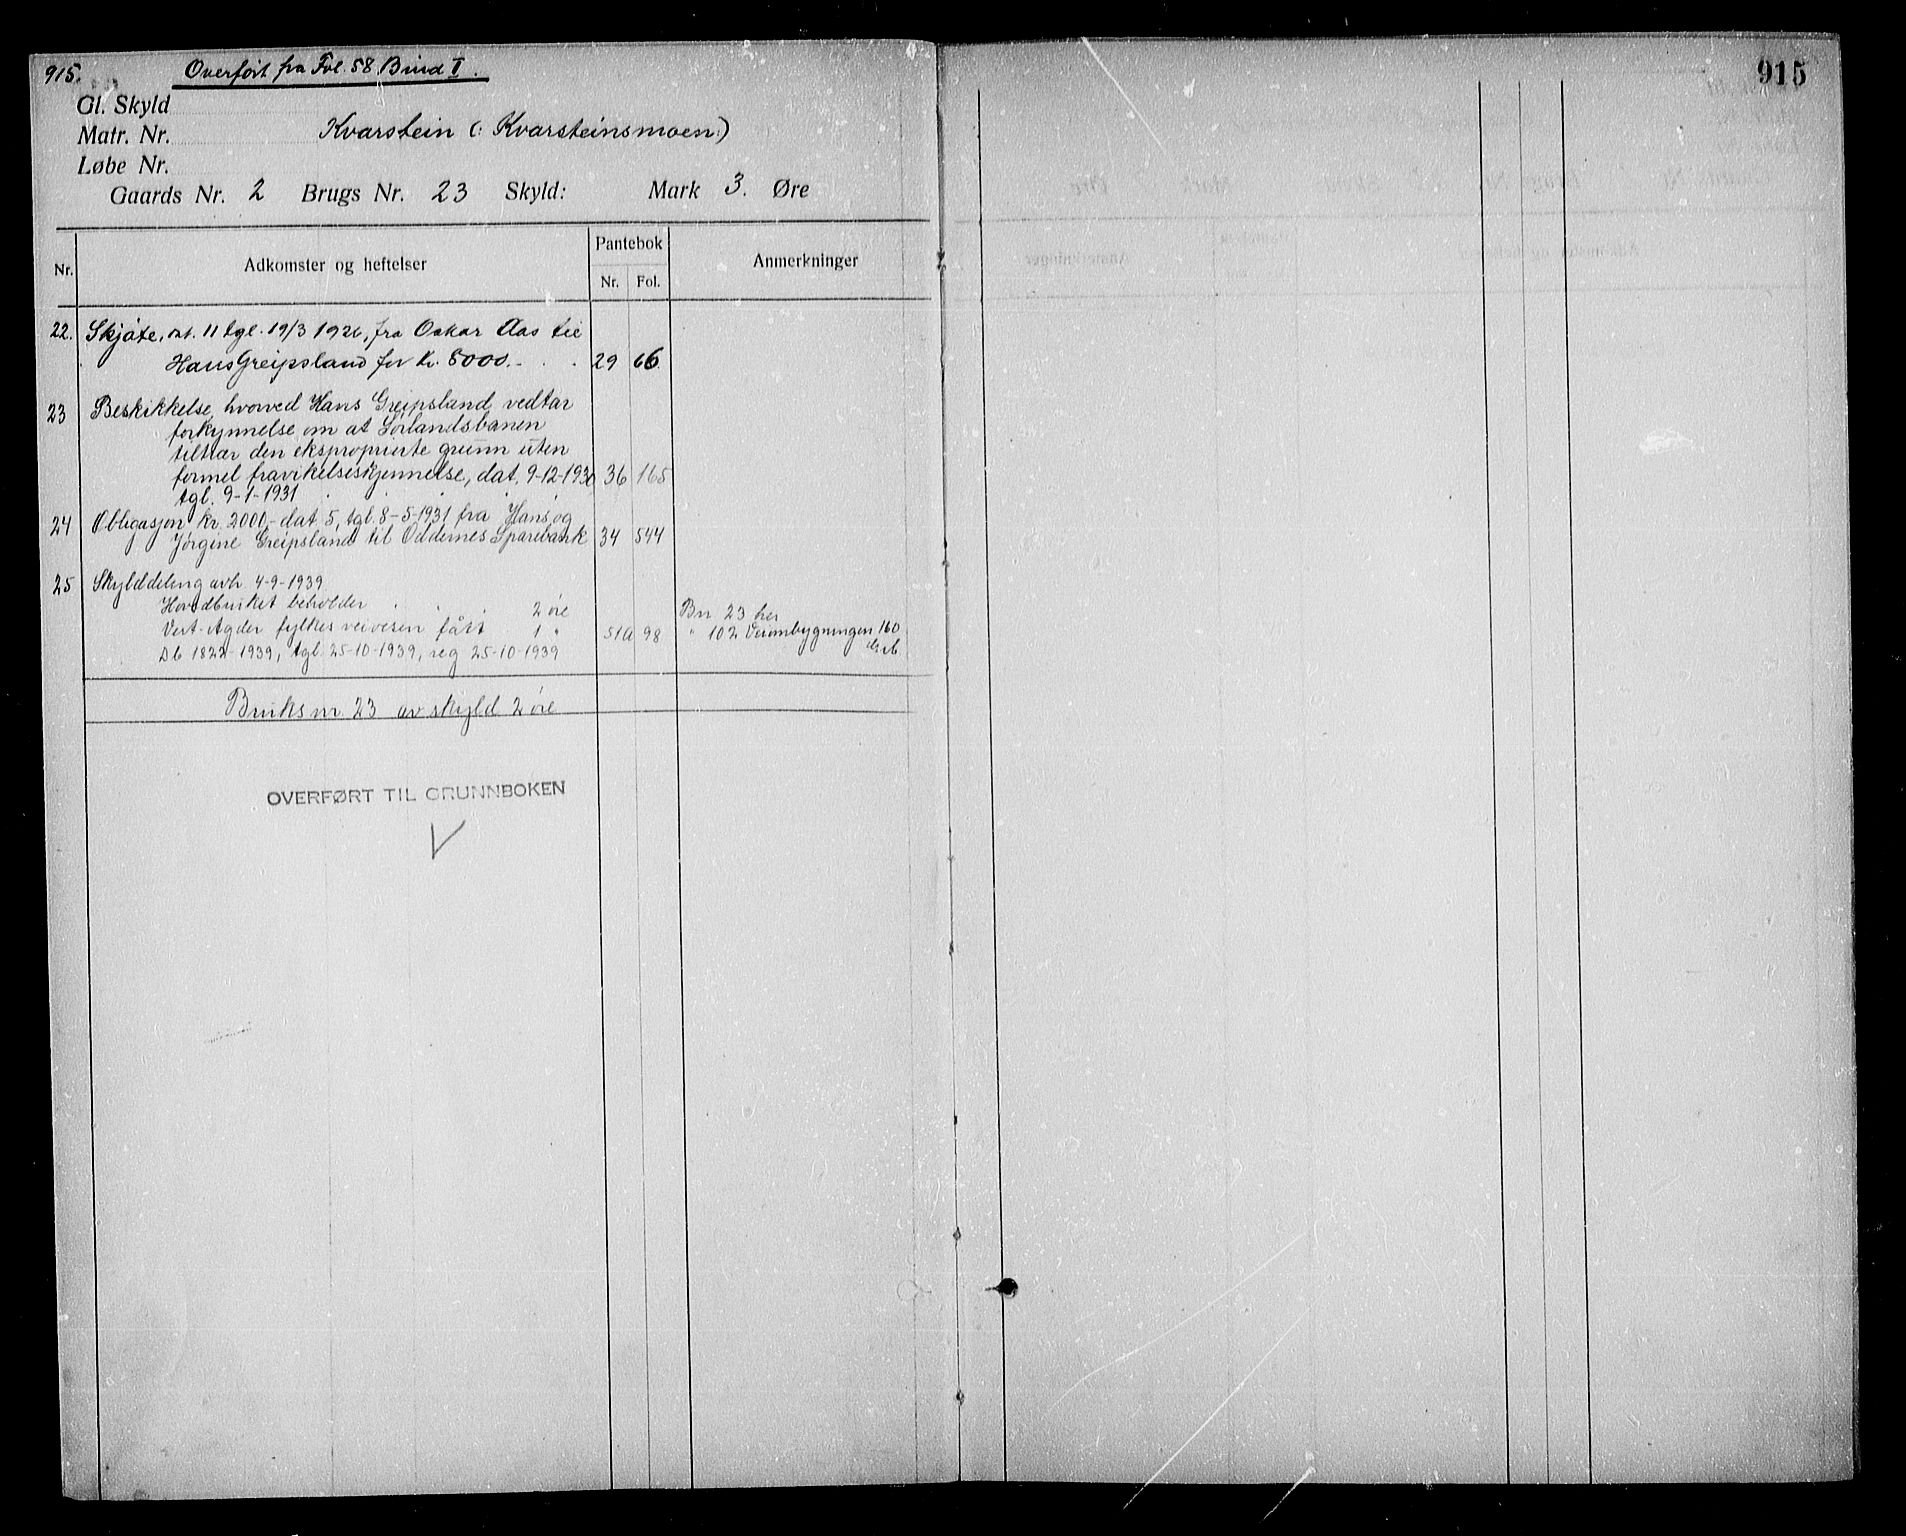 915. Overført fra Fol. 58 Bind I.
915
Gl. Skyld
Matr. Nr. Kvarstein (: Kvarsteinsmoen:)
Løbe Nr.
Gaards Nr. 2 Brugs Nr. 23 Skyld: Mark 3. Øre
Nr. Adkomster og heftelser Pantebok Anmerkninger
Nr. Fol.
22. Skjøte, dat. 11 tgl. 19/3 1926, fra Oskar Aas til
Hans Greipsland for kr. 8000.- . . 29 66.
23 Beskikkelse, hvorved Hans Greipsland vedtar
forkynnelse om at Sørlandsbanen
tiltrær den eksproprierte grunn uten
formel fravikelseskjennelse, dat. 9-12-1930 36 165
tgl. 9-1-1931
24 Obligasjon kr. 2000,- dat 5, tgl. 8-5-1931 fra Hans og
Jørgine Greipsland til Oddernes Sparebank 34 544
25 Skylddeling avh 4-9-1939
Hovedbruket beholder . . . 2 øre Bn 23 her
Vest-Agder fylkes veivesen fått 1 " 51a 98 " 102 Veiombygningen 160
Db 1822-1939, tgl. 25-10-1939, reg 25-10-1939
Bruksnr 23 av skyld 2 øre
OVERFØRT TIL GRUNNBOKEN